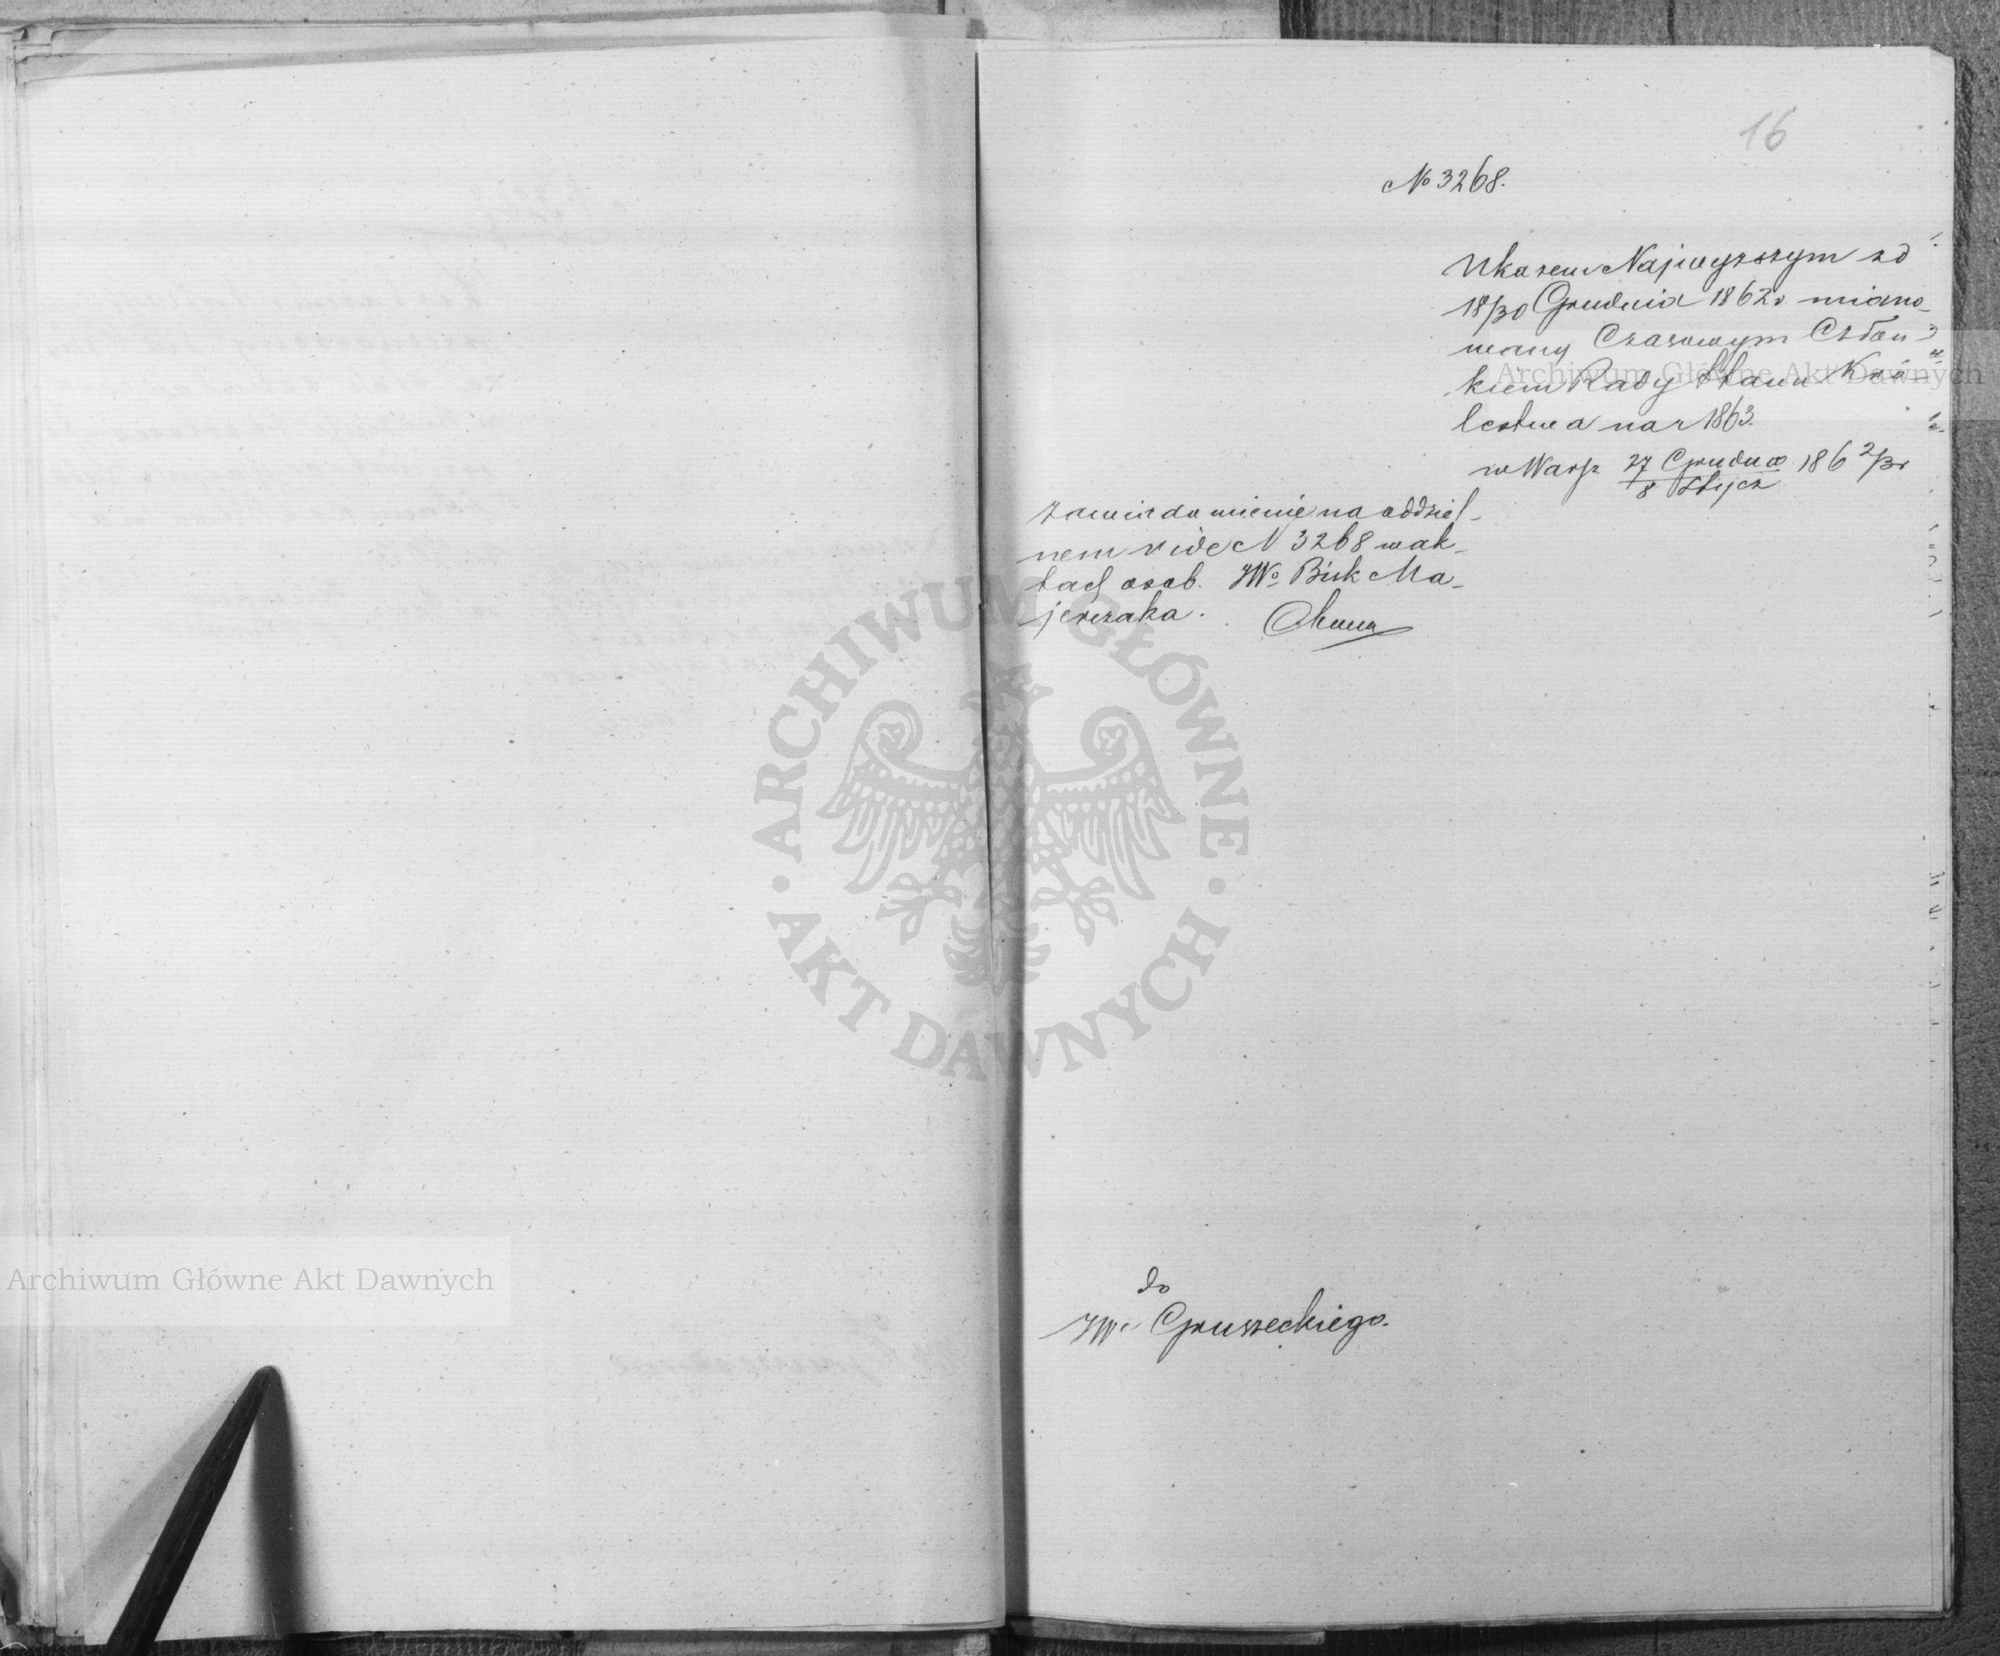 16
No 3268.
Ukazem Najwyższym z d
18/30 Grudnia 1862 r miano-
wany Czasowym Człon-
kiem Rady Stanu Kró-
lestwa na r 1863.
w Warsz 27 Grudnia 1862/3 r
8 Stycz
Zawiadomienie na oddziel-
nem vide N 3268 w ak-
tach osob. JWo Bisk Ma-
jerczaka.
do
JWo Gruszeckiego.
Archiwum Główne Akt Dawnych
Archiwum Główne Akt Dawnych
ARCHIWUM GŁÓWNE · AKT DAWNYCH ·